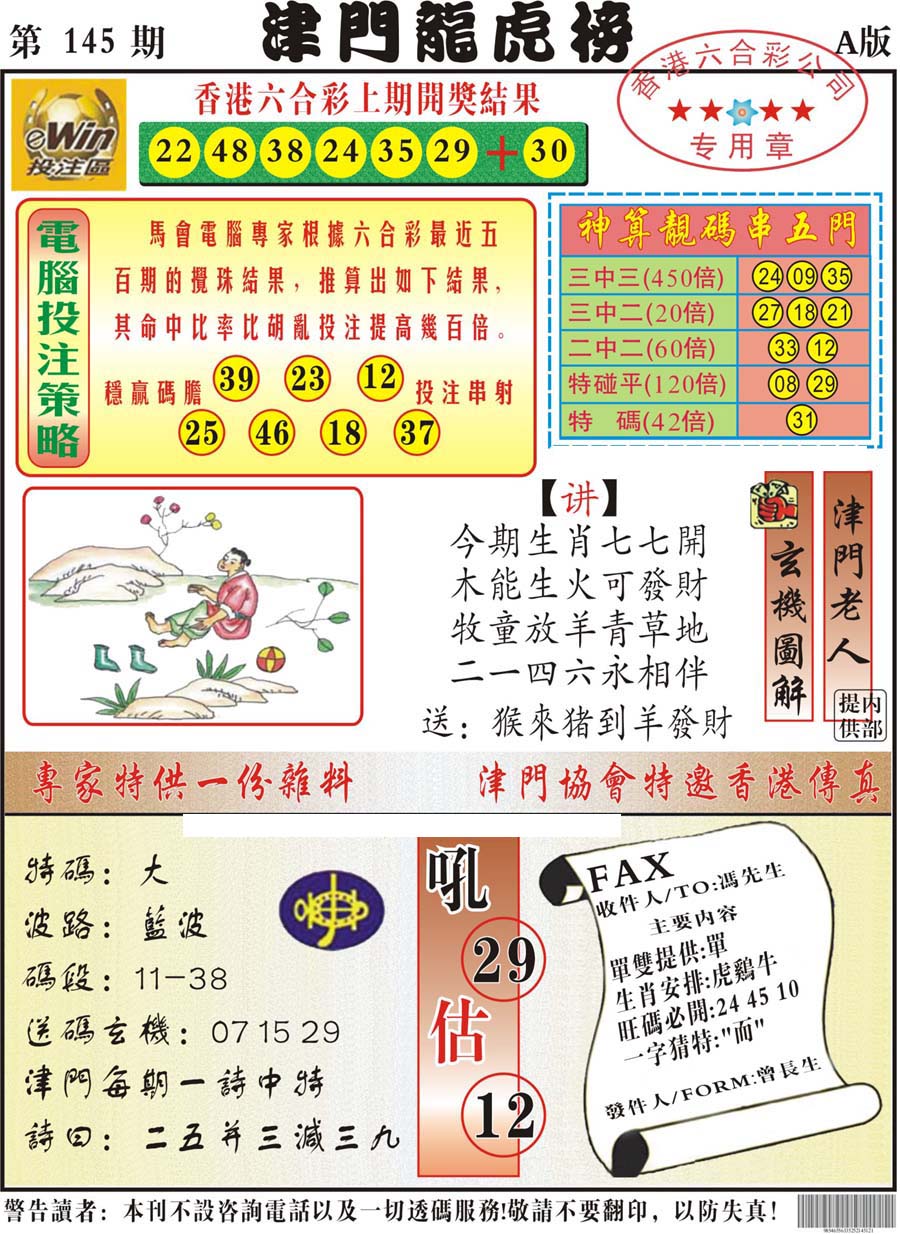 第 145 期
津門龍虎榜
A版
eWin
投注區
香港六合彩上期開獎結果
22 48 38 24 35 29 + 30
香港六合彩公司
★★★★
专用章
電腦投注策略
馬會電腦專家根據六合彩最近五
百期的攪珠結果，推算出如下結果，
其命中比率比胡亂投注提高幾百倍。
穩贏碼膽 39 23 12 投注串射
25 46 18 37
神算靚碼串五門
三中三(450倍) 24 09 35
三中二(20倍) 27 18 21
二中二(60倍) 33 12
特碰平(120倍) 08 29
特 碼(42倍) 31
【讲】
今期生肖七七開
木能生火可發財
牧童放羊青草地
二一四六永相伴
送：猴來猪到羊發財
玄機圖解
津門老人
提供
内部
專家特供一份雜料
津門協會特邀香港傳真
特碼：大
波路：藍波
碼段：11-38
送碼玄機：07 15 29
津門每期一詩中特
詩曰：二五并三減三九
吼
29
估
12
FAX
收件人/TO:馮先生
主要内容
單雙提供:單
生肖安排:虎鷄牛
旺碼必開:24 45 10
一字猜特:"而"
發件人/FORM:曾長生
警告讀者：本刊不設咨詢電話以及一切透碼服務!敬請不要翻印，以防失真！